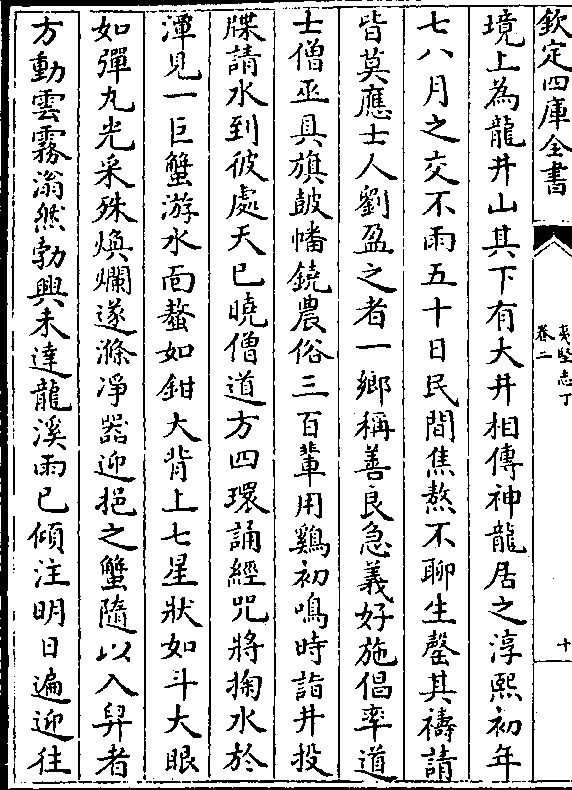 欽定四庫全書
夷堅志丁
卷二
十
境上為龍井山其下有大井相傳神龍居之淳熙初年
七八月之交不雨五十日民間焦熬不聊生罄其禱請
皆莫應士人劉盈之者一鄉稱善良急義好施倡率道
士僧巫具旗鼓幡鐃農俗三百輩用鷄初鳴時詣井投
牒請水到彼處天已曉僧道方四環誦經咒將掬水於
潭見一巨蟹游水面螯如鉗大背上七星狀如斗大眼
如彈丸光采殊煥爛遂滌凈器迎挹之蟹隨以入舁者
方動雲霧滃然勃興未達龍溪雨已傾注明日遍迎往